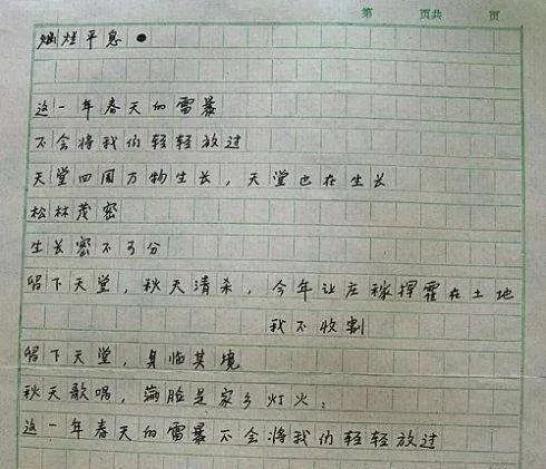 第 页共 页
灿烂平息
这一年春天的雷暴
不会将我们轻轻放过
天堂四周万物生长，天堂也在生长
松林茂密
生长密不可分
留下天堂，秋天清杀，今年让庄稼挥霍在土地
我不收割
留下天堂，身临其境
秋天歌唱，满脸是家乡灯火：
这一年春天的雷暴不会将我们轻轻放过